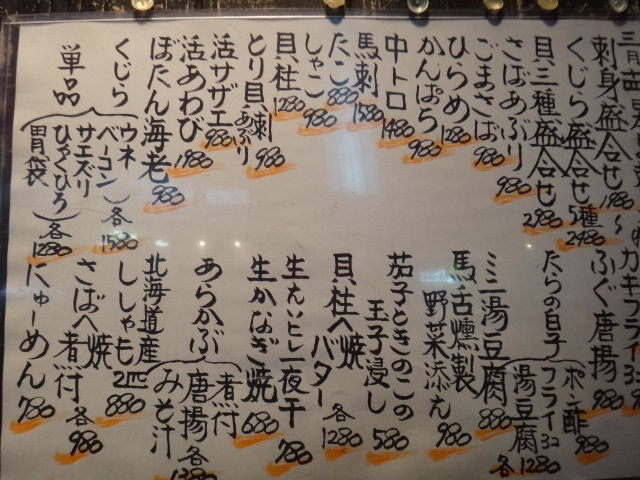 刺身盛合せ 1980〜
くじら盛合せ 5種 2480
貝三種盛合せ 2980
さばあぶり 980
ごまさば 980
ひらめ 1280
かんぱち 980
中トロ 1480
馬刺 1580
たこ 880
しゃこ 980
貝柱 1280
とり貝 刺 あぶり 980
活サザエ 980
活あわび 1980
ぼたん海老 980
くじら
ウネ
ベーコン 各1580
サエズリ
ひゃくひろ
胃袋 各1280
単品
カキフライ 3コ
ふぐ唐揚 980
たらの白子
ポン酢 980
フライ3コ
湯豆腐 各1280
ミニ湯豆腐 880
馬古燻製
野菜添え 980
茄子ときのこの
玉子浸し 580
貝柱
焼
バター 各1280
生えいひれ一夜干 780
生かなぎ焼 680
あらかぶ
煮付
唐揚
みそ汁 各1380
北海道産
ししゃも 2匹 880
さば
焼
煮付 各980
にゅーめん 780